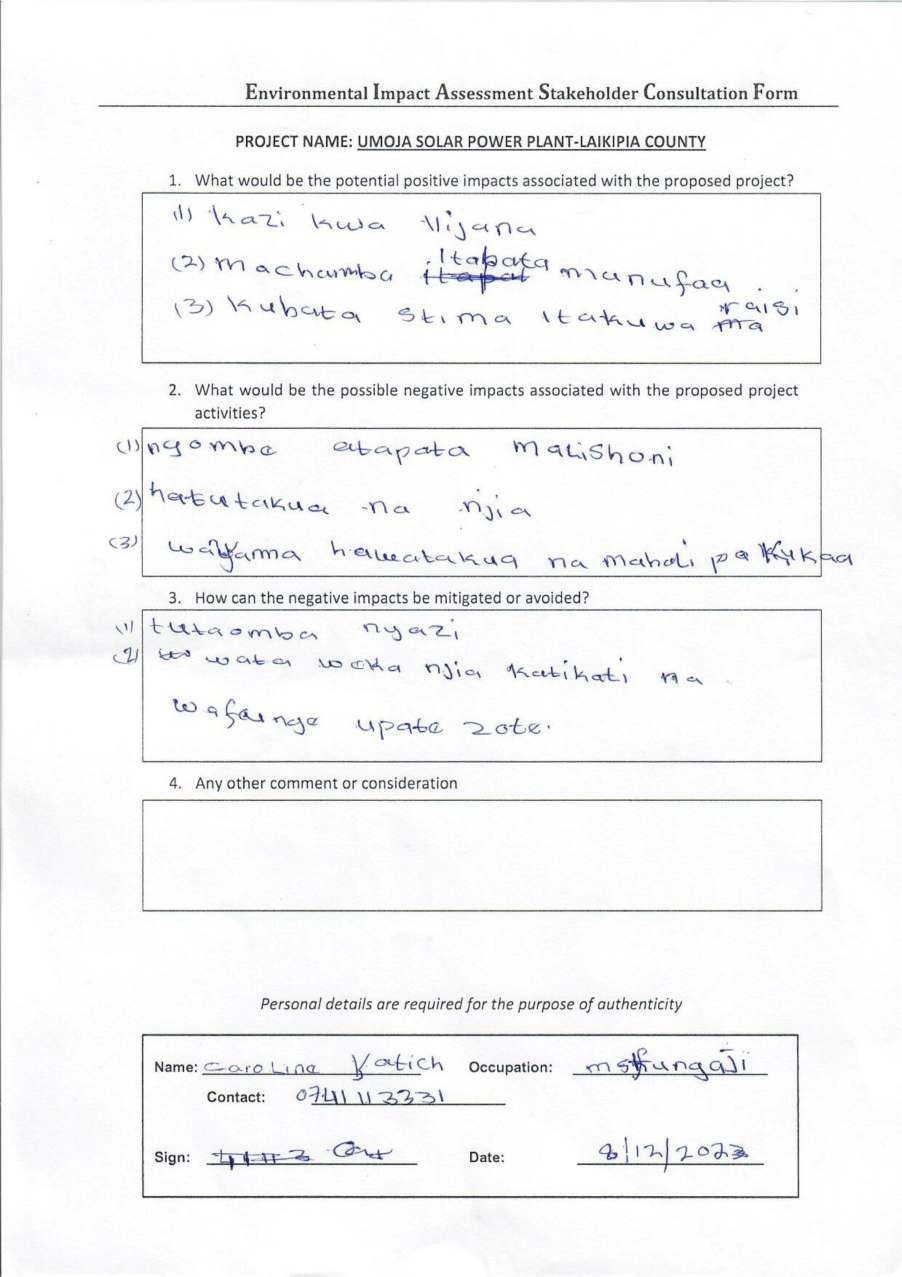 Environmental Impact Assessment Stakeholder Consultation Form
PROJECT NAME: UMOJA SOLAR POWER PLANT-LAIKIPIA COUNTY
1. What would be the potential positive impacts associated with the proposed project?
(1) Kazi kwa Vijana
(2) Machumba itabata manufaa
(3) Kubata stima itakuwa raisi
2. What would be the possible negative impacts associated with the proposed project
activities?
(1) ngombe atapata malishoni
(2) hatutakua na njia
(3) wanyama hawatakua na mahali pa kukaa
3. How can the negative impacts be mitigated or avoided?
(1) tutaomba nyazi
(2) wata weka njia katikati na
wafunge upate zote.
4. Any other comment or consideration
Personal details are required for the purpose of authenticity
Name: Caroline Occupation: msfungaji
Contact: 0741113331
Sign: Date: 8/12/2023